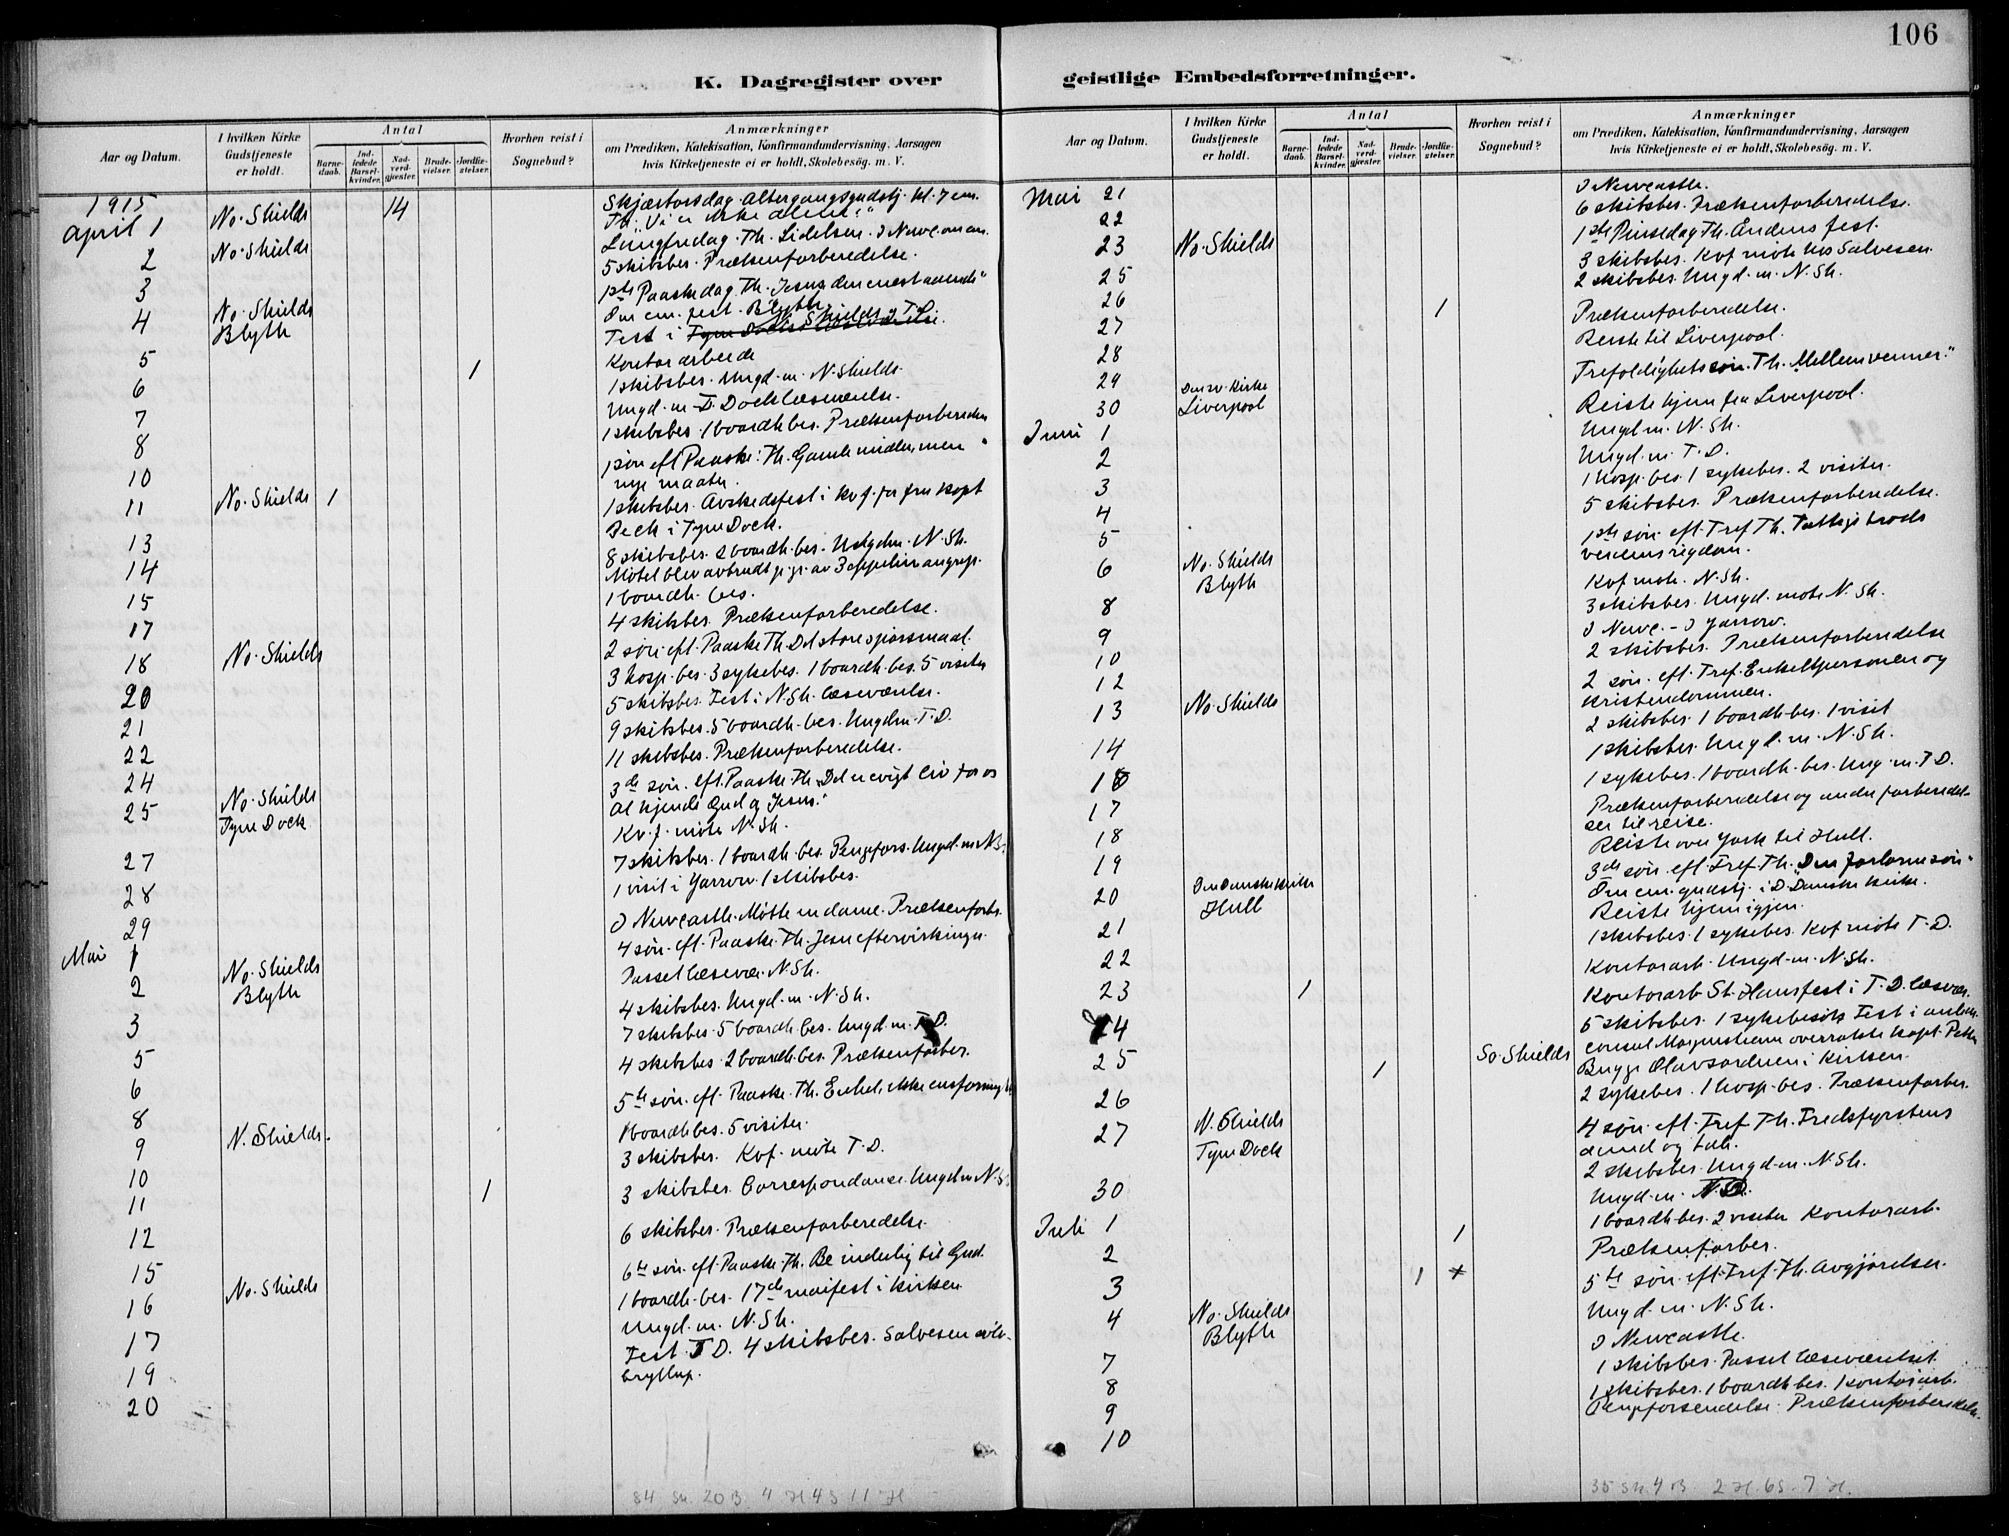 106
K. Dagregister over
geistlige Embedsforretninger.
Aar og Datum.
I hvilken Kirke
Gudstjeneste
er holdt.
Antal
Barne-
daab.
Ind-
ledede
Barsel-
kvinder.
Nad-
verd-
gjæster.
Brude-
vielser.
Jordfæ-
stelser.
Hvorhen reist i
Sognebud?
Anmærkninger
om Prædiken, Katekisation, Konfirmandundervisning, Aarsagen
hvis Kirketjeneste ei er holdt, Skolebesög. m. V.
1915
April 1 No. Shields 14
Skjærtorsdag Altergangsgudstj. kl. 7 em.
Th. "Vi er ikke alene."
2 No. Shields
Langfredag. Th. Lidelsen. I Newc. om em.
3
5 skibsbes. Prækenforberedelse.
4 No. Shields
Blyth
1ste Paaskedag. Th. Jesus den enestaaende"
Om em. fest. Blyth.
5
Fest i N. Shields T.D.
6 1
Kontorarbeide
1 skibsbes. Ungd. m. N. Shields.
7
Ungd. m T. Dock læseværelse.
8
1 skibsbes. 1 boardh. bes. Prækenforbereden
10
1 søn. eft Paaske: Th. Gamle midler, men
nye maater.
11 No. Shields 1
1 skibsbes. Avskedsfest i Kv.f. for fru kapt
Beck i Tyne Dock.
13
8 skibsbes. 2 boardh. bes. Ungdm. N. Sh.
14
Møtet blev avbrudt p. gr. av Zeppelinangrep.
15
1 boardh. bes.
17
4 skibsbes. Prækenforberedelse.
18 No. Shields
2 søn. eft. Paaske Th. Det store spørsmaal.
20
3 hosp. bes. 3 sykebes. 1 boardh. bes. 5 visiter
21
5 skibsbes. Fest i N. Sh. læseværelse.
22
9 skibsbes. 5 boardh. bes. Ungdm. T. D.
24
11 skibsbes. Prækenforberedelse.
25 No. Shields
Tyne Dock
3de søn. eft. Paaske. Th. "Det er evigt liv for os
at kjende Gud og Jesus."
27
Kv.f. møte N. Sh.
28
7 skibsbes. 1 boardh. bes. Pengefors. Ungd. m N.S.
29
1 visit i Yarrow. 1 skibsbes.
Mai 1
I Newcastle. Møtte en dame. Prækenforb.
2 No. Shields
Blyth
4 søn. eft. Paaske. Th. Jesu eftervirkinger.
3
Passet læsevær. N. Sh.
5
4 skibsbes. Ungd. m. N. Sh.
6
7 skibsbes. 5 boardh. bes. Ungd. m. T. D.
8
4 skibsbes 2 boardh. bes. Prækenforber.
9 N. Shields.
5te søn. eft. Paaske. Th.
10
1 boardh. bes. 5 visiter.
11 1
3 skibsbes. Kvf. møte T. D.
12
3 skibsbes. Correspondance. Ungd. m N. S.
15
6 skibsbes. Prækenforberedelse.
16 No. Shields
6te søn. eft. Paaske. Th. Be inderlig til Gud.
17
1 boardh. bes. 17de maifest i kirken
19
Ungd. m. N. Sh.
20
Fest T D. 4 skibsbes. Salvesen sølv-
bryllup.
84 Sk. 20 B. 4 H 4 S 11 H
Aar og Datum.
I hvilken Kirke
Gudstjeneste
er holdt.
Antal
Barne-
daab.
Ind-
ledede
Barsel-
kvinder.
Nad-
verd-
gjæster.
Brude-
vielser.
Jordfæ-
stelser.
Hvorhen reist i
Sognebud?
Anmærkninger
om Prædiken, Katekisation, Konfirmandundervisning, Aarsagen
hvis Kirketjeneste ei er holdt, Skolebesög. m. V.
Mai 21
I Newcastle.
22
6 skibsbes. Prækenforberedelse.
23 No. Shields
1ste Pinsedag Th. Åndens fest.
25
3 skibsbes. Kvf møte hos Salvesen.
26 1
2 skibsbes. Ungd. m. N. Sh.
27
28
Prækenforberedelse.
29
Reiste til Liverpool.
30 Den sv. Kirke
Liverpool
Trefoldighetssøn. Th. "Mellem venner."
Juni 1
Reiste hjem fra Liverpool.
2
Ungd m. N. Sh.
3
Ungd. m. T. D.
4
1 hosp. bes. 1 sykebes. 2 visiter.
5
5 skibsbes. Prækenforberedelse.
6 No. Shields
Blyth
1ste søn. eft. Tref Th. Fattigt trods
verdens rigdom.
8
Kvf møte. N. Sh.
9
3 skibsbes. Ungd. møte N. Sh.
10
I Newc. - I Yarrow.
12
2 skibsbes. Prækenforberedelse
13 No. Shields
2 søn. eft. Tref. Enkeltpersonen og
kristendommen.
14
2 skibsbes. 1 boardh. bes. 1 visit
16
1 skibsbes. Ungd. m. N. Sh.
17
1 sykebes. 1 boardh. bes. Ung. m. T D.
18
Prækenforberedelse og andre forberedel-
ser til reise.
19
Reiste over York til Hull.
20 Den Danske kirke
Hull
3de søn. eft Tref. Th. "Den fortorne søn."
Om em. gudstj. i D. Danske kirke.
21
Reiste hjem igjen.
22
1 skibsbes. 1 sykebes. Kvf møte T. D.
23 1
Kontorarb. Ungd. m. N. Sh.
24
Kontorarb St. Hansfest i T. D. læsevær.
25 1 So. Shields
5 skibsbes. 1 sykebesøk Fest i anledn.
consul overrakte kapt.
Bugge Olavsordnen i kirken.
26
2 sykebes. 1 hosp. bes. Prækenforber.
27 N. Shields
Tyne Dock
4 søn. eft. Tref Th. Fredsfyrstens
aand og tale.
30
2 skibsbes. Ungd. m. N. Sh.
Juli 1 1
Ungd. m.
2
1 boardh bes. 2 visiter Kontorarb.
3 1
Prækenforber.
4 No. Shields
Blyth
5te søn. eft. Tref. Th. Avgjørelser.
7
Ungd. m. N. Sh.
8
I Newcastle.
9
1 skibsbes. Passet læseværelset
10
1 skibsbes. 1 boardh bes. Kontorarb.
Pengeforsendelse. Prækenforberedelse.
35 Sk 4 B. 2 H. 6 S. 7 H.